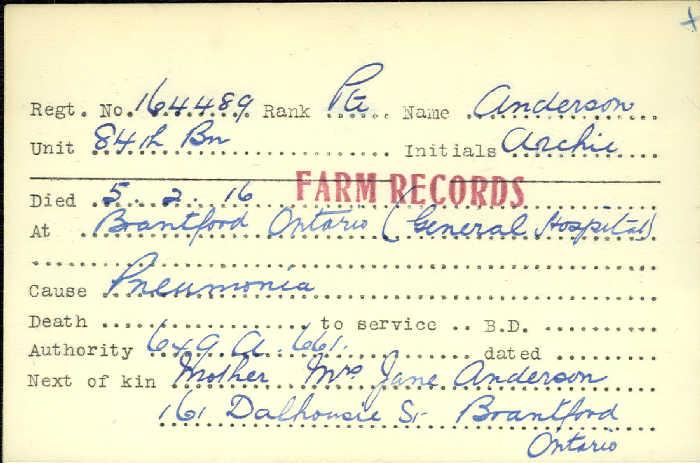 Regt. No. 164489 Rank Pte Name Anderson
Unit 84th Bn Initials Archie
Died 5. 2. 16 FARM RECORDS
At Brantford Ontario (General Hospital)
Cause Pneumonia
Death to service B.D.
Authority 649 A. 661. dated
Next of kin Mother Mrs Jane Anderson
161 Dalhousie St Brantford
Ontario